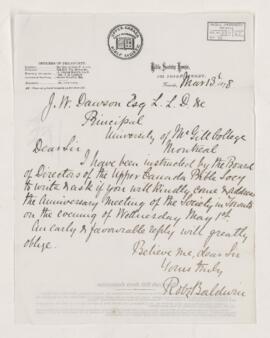 UPPER CANADA
BIBLE SOCIETY
Bible Society House,
Toronto, Mar 13th 1878
J. W. Dawson Esq L. L. D &c
Principal
University of McGill College
Montreal
Dear Sir
I have been instructed by the Board
of Directors of the Upper Canada Bible Socy
to write & ask if you will kindly come & address
the Anniversary Meeting of the Society in Toronto
on the evening of Wednesday May 1st.
An early & favourable reply will greatly
oblige.
Believe me, dear Sir
Yours truly
Robt Baldwin